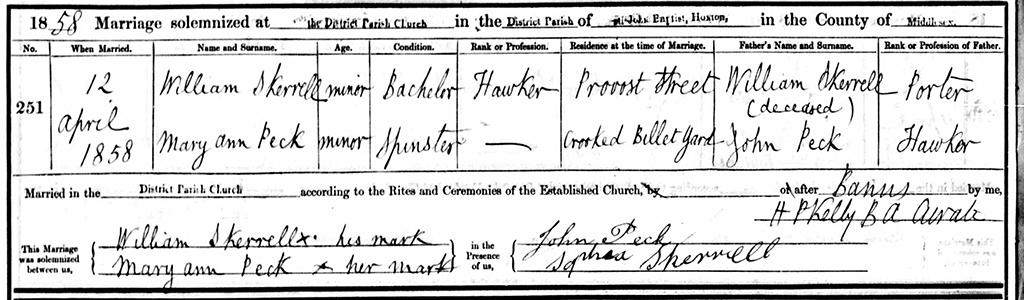 1858 Marriage solemnized at the District Parish Church in the District Parish of St John Baptist, Hoxton, in the County of Middlesex.
No. When Married. Name and Surname. Age. Condition. Rank or Profession. Residence at the time of Marriage. Father's Name and Surname. Rank or Profession of Father.
251 12 April 1858
William Skerrell minor Bachelor Hawker Provost Street William Skerrell (deceased) Porter
Mary ann Peck minor Spinster — Crooked Billet Yard John Peck Hawker
Married in the District Parish Church according to the Rites and Ceremonies of the Established Church, by or after Banns by me,
H P Kelly B A Curate
This Marriage was solemnized between us,
William Skerrell x his mark
Mary ann Peck x her mark
in the Presence of us,
John Peck
Skerrell